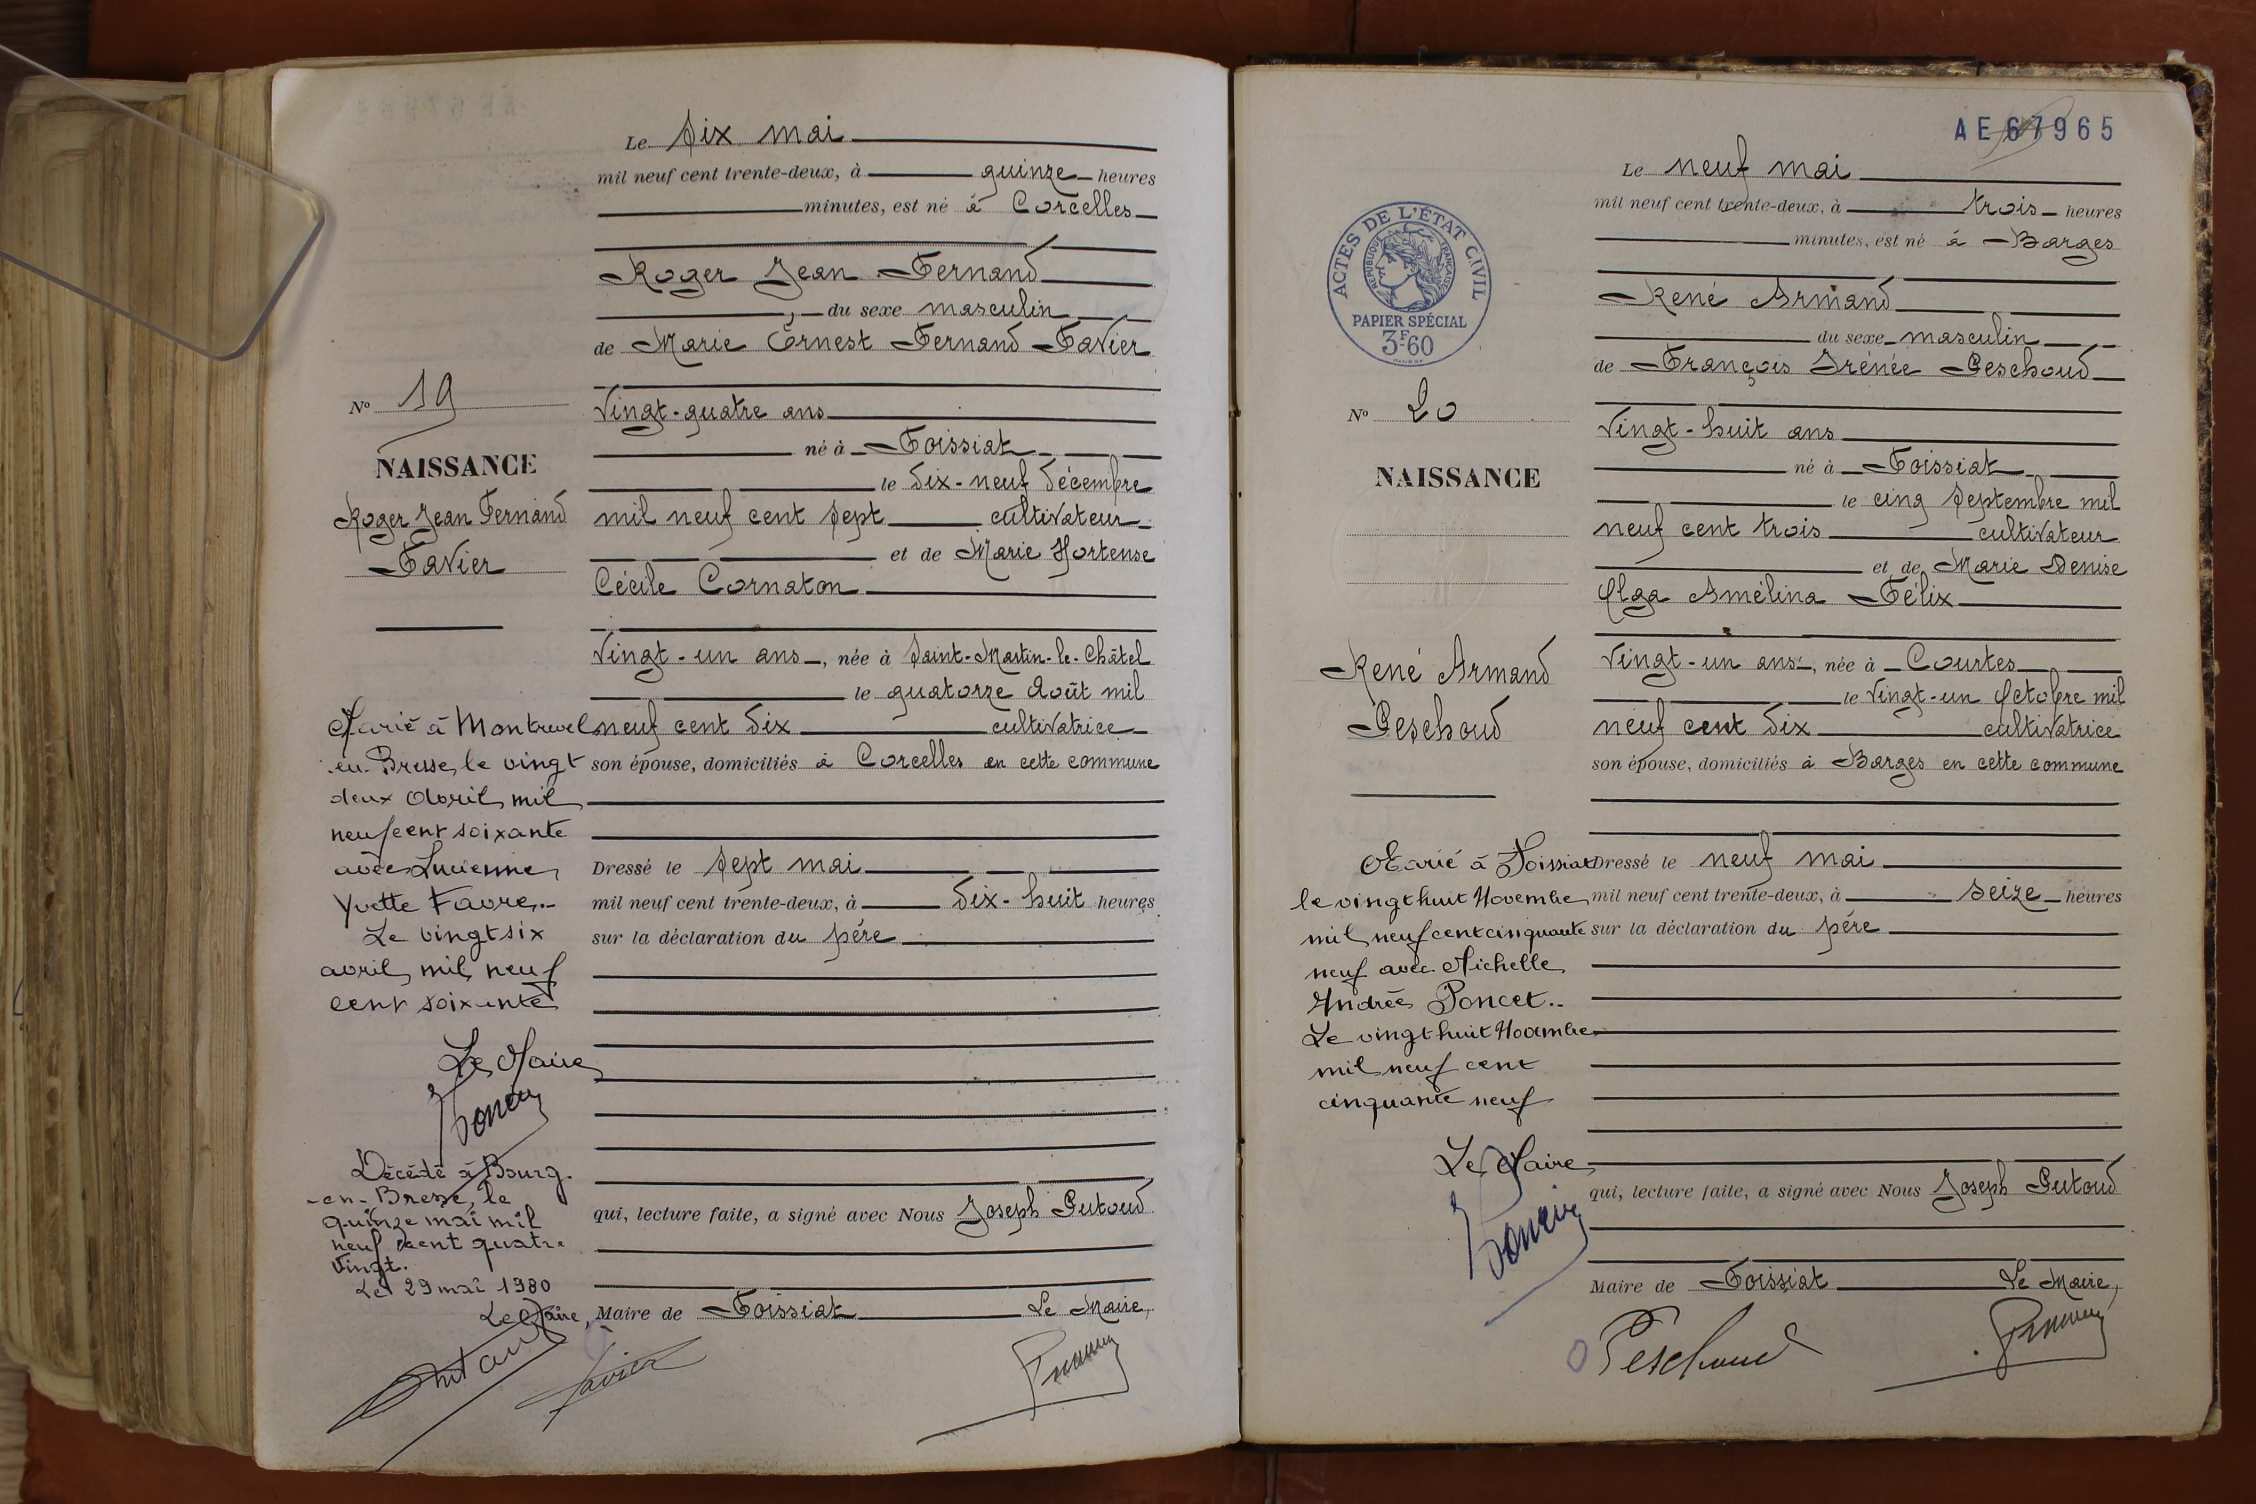 Le six mai
mil neuf cent trente-deux, à quinze heures
minutes, est né à Corcelles
Roger Jean Fernand
, du sexe masculin
de Marie Ernest Fernand Favier
vingt-quatre ans
né à Foissiat
le dix-neuf décembre
mil neuf cent sept cultivateur
et de Marie Hortense
Cécile Cornaton
vingt-un ans, née à Saint-Martin-le-Châtel
le quatorze Août mil
neuf cent dix cultivatrice
son épouse, domiciliés à Corcelles en cette commune
Dressé le sept mai
mil neuf cent trente-deux, à dix-huit heures
sur la déclaration du père
qui, lecture faite, a signé avec Nous Joseph Putoud
Maire de Foissiat Le Maire,
Favier
No 19
NAISSANCE
Roger Jean Fernand
Favier
Marié à Montrevel
en Bresse, le vingt
deux Avril mil
neuf cent soixante
avec Lucienne
Yvette Favre.-
Le vingt six
avril mil neuf
cent soixante
Le Maire
Décédé à Bourg-
-en-Bresse, le
quinze mai mil
neuf cent quatre
vingt.
Le 29 mai 1980
Le Maire,
AE 67965
Le neuf mai
mil neuf cent trente-deux, à trois heures
minutes, est né à Barges
René Armand
du sexe masculin
de François Irénée Peschoud
vingt-huit ans
né à Foissiat
le cinq septembre mil
neuf cent trois cultivateur
et de Marie Denise
Olga Amélina Félix
vingt-un ans, née à Courtes
le vingt-un Octobre mil
neuf cent dix cultivatrice
son épouse, domiciliés à Barges en cette commune
Dressé le neuf mai
mil neuf cent trente-deux, à seize heures
sur la déclaration du père
qui, lecture faite, a signé avec Nous Joseph Putoud
Maire de Foissiat Le Maire,
Peschoud
ACTES DE L'ÉTAT CIVIL
RÉPUBLIQUE FRANÇAISE
PAPIER SPÉCIAL
3F60
No 20
NAISSANCE
René Armand
Peschoud
Marié à Foissiat
le vingt huit Novembre
mil neuf cent cinquante
neuf avec Michelle
Andrée Poncet..
Le vingt huit Novembre
mil neuf cent
cinquante neuf
Le Maire